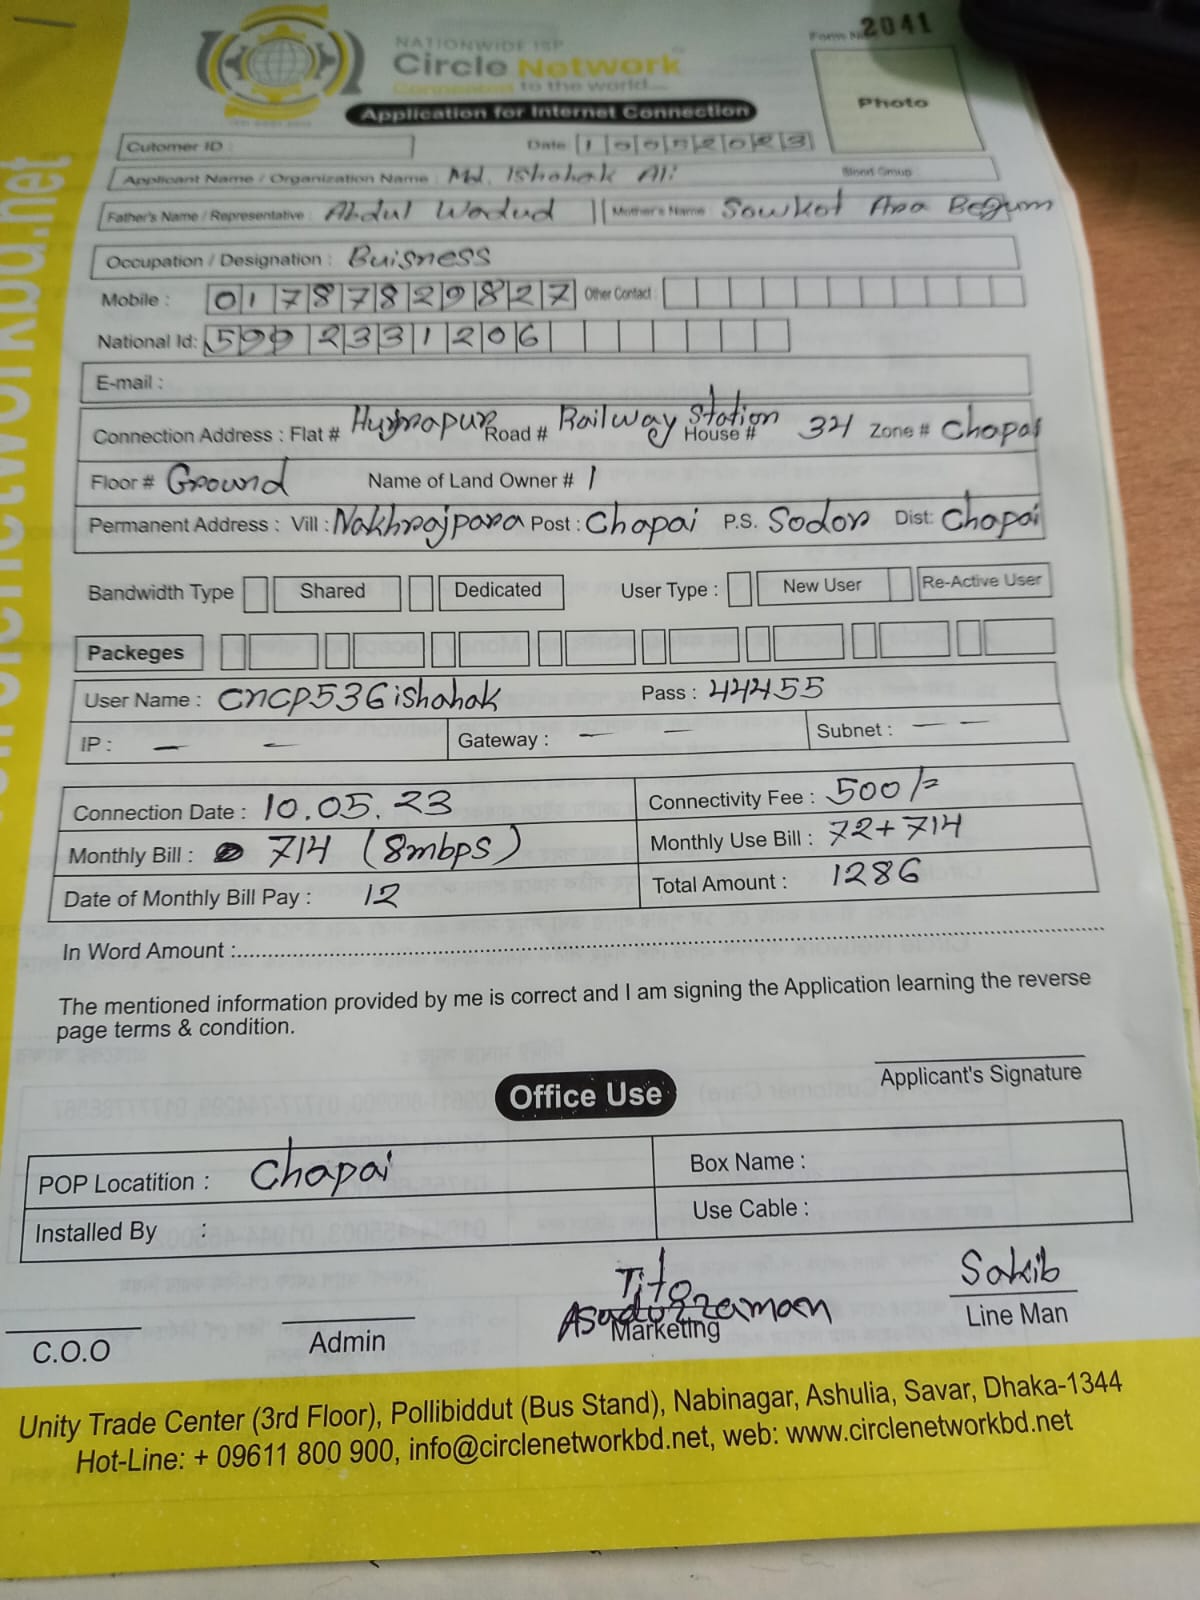 Form No. 2041
NATIONWIDE ISP
Circle Network
Connected to the world...
Application for Internet Connection
Photo
Cutomer ID :
Date 10052023
Applicant Name / Organization Name : Md. Ishahak Ali Blood Group
Father's Name / Representative : Abdul Wadud Mother's Name Sawkat Ara Begum
Occupation / Designation : Buisness
Mobile : 01787829827 Other Contact :
National Id: 5992331206
E-mail :
Connection Address : Flat # Road # Railway Station House # 34 Zone # Chapai
Floor # Ground Name of Land Owner # 1
Permanent Address : Vill : Nakhrajpara Post : Chapai P.S. Sodor Dist: Chapai
Bandwidth Type Shared Dedicated User Type : New User Re-Active User
Packeges
User Name : CNCP536ishahak Pass : 44455
IP : — — Gateway : — — Subnet : — —
Connection Date : 10.05.23 Connectivity Fee : 500/=
Monthly Bill : 714 (8mbps) Monthly Use Bill : 72+714
Date of Monthly Bill Pay : 12 Total Amount : 1286
In Word Amount :
The mentioned information provided by me is correct and I am signing the Application learning the reverse
page terms & condition.
Applicant's Signature
Office Use
POP Locatition : Chapai Box Name :
Installed By : Use Cable :
Tito
Asaduzzaman
Sakib
C.O.O Admin Marketing Line Man
Unity Trade Center (3rd Floor), Pollibiddut (Bus Stand), Nabinagar, Ashulia, Savar, Dhaka-1344
Hot-Line: + 09611 800 900, info@circlenetworkbd.net, web: www.circlenetworkbd.net